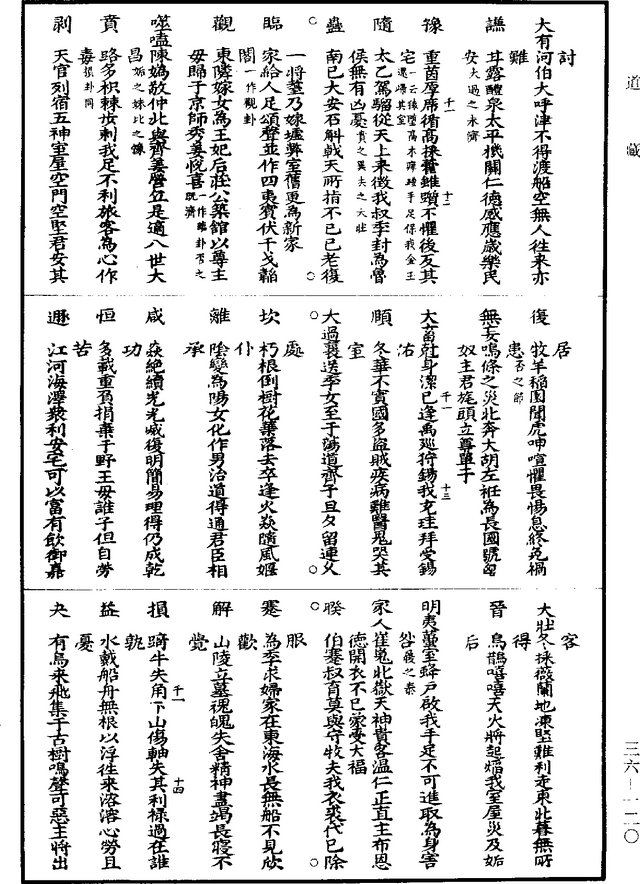 討
大有河伯大呼津不得渡船空無人往來亦
難
謙 甘露醴泉太平機關仁德感應歲樂民
安大過之未濟
豫 重茵厚席循高採藿雖躓不懼後反其
宅一云猱墮高木不踒手足保我金玉還歸其室
隨 太乙駕騮從天上來徵我叔季封為魯
侯無有凶憂賁之巽夬大壯
蠱 南巳大安石斛戟天所指不已已老復
一將蓋乃嫁墟弊室舊更為新家
臨 家給人足頌聲並作四夷賓伏干戈韜
閣一作觀卦
觀 東隣嫁女為王妃后莊公築館以尊主
母歸于京師季姜悅喜一作臨卦否之既濟
噬嗑陳媯敬仲兆與齊姜營丘是適八世大
昌姤之姝比之謙
賁 路多枳棘步刺我足不利旅客為心作
毒損卦同
剥 天官列宿五神室屋空門空堅君安其
居
復 牧羊稻園聞虎呻喧懼畏惕息終免禍
患否之節
無妄鳴條之災北奔大胡左衽為長國號匈
奴主君旄頭立尊單于
大畜尅身潔已逢禹巡狩錫我玄珪拜受錫
佑
頤 冬華不實國多盜賊疾病難醫鬼哭其
室
大過襄送季女至于蕩道齊子旦夕留連久
處
坎 朽根倒樹花葉落去卒逢火焱隨風偃
仆
離 陰變為陽女化作男治道得通君臣相
承
咸 焱絶續光光烕復明簡易理得仍成乾
功
恒 多載重負捐棄于野王母誰子但自勞
苦
遯 江河海澤衆利安宅可以富有飲御嘉
客
大壯冬採薇蘭地凍堅難利走東北暮無所
得
晉 鳥鵲嘻嘻天火將起燔我室屋災及姤
后
明夷蓳室蜂戶啟我手足不可進取為身害
咎履之泰
家人崔嵬北嶽天神貴客温仁正直主布恩
德閒衣不已蒙受大福
睽 伯蹇叔盲莫與守牧失我衣裘代已除
服
蹇 為季求婦家在東海水長無船不見欣
歡
解 山陵丘墓魂魄失舍精神盡竭長寢不
覺
損 踦牛失角下山傷軸失其利祿過在誰
孰
益 水載船舟無根以浮往來溶溶心勞且
憂
夬 有鳥來飛集于古樹鳴聲可惡主將出
道藏
三六—一二〇
千一
十二
千一
十三
千一
十四